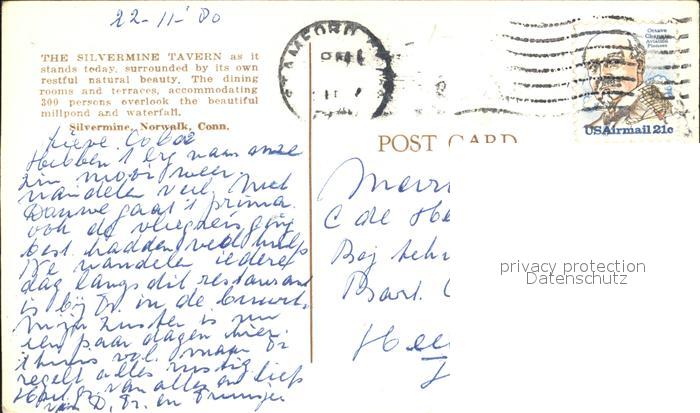 22-11-'80
THE SILVERMINE TAVERN as it
stands today, surrounded by its own
restful natural beauty. The dining
rooms and terraces, accommodating
300 persons overlook the beautiful
millpond and waterfall.
Silvermine, Norwalk, Conn.
STAMFORD
PM
Octave
Chanute
Aviation
Pioneer
USAirmail 21c
POST CARD
Lieve
Hebben 't erg naar onze
zin mooi weer
wandelen veel. Met
gaat 't prima
ook de vliegreis ging
best. hadden veel hulp
We wandelen iedere
dag langs dit restaurant
is bij Tr. in de buurt.
Mijn zuster is nu
een paar dagen hier.
't huis vol. maar Tr
regelt alles rustig
van alles en liefs
van D, Tr. en
Mevr
C de He
Bart.
Hee
privacy protection
Datenschutz